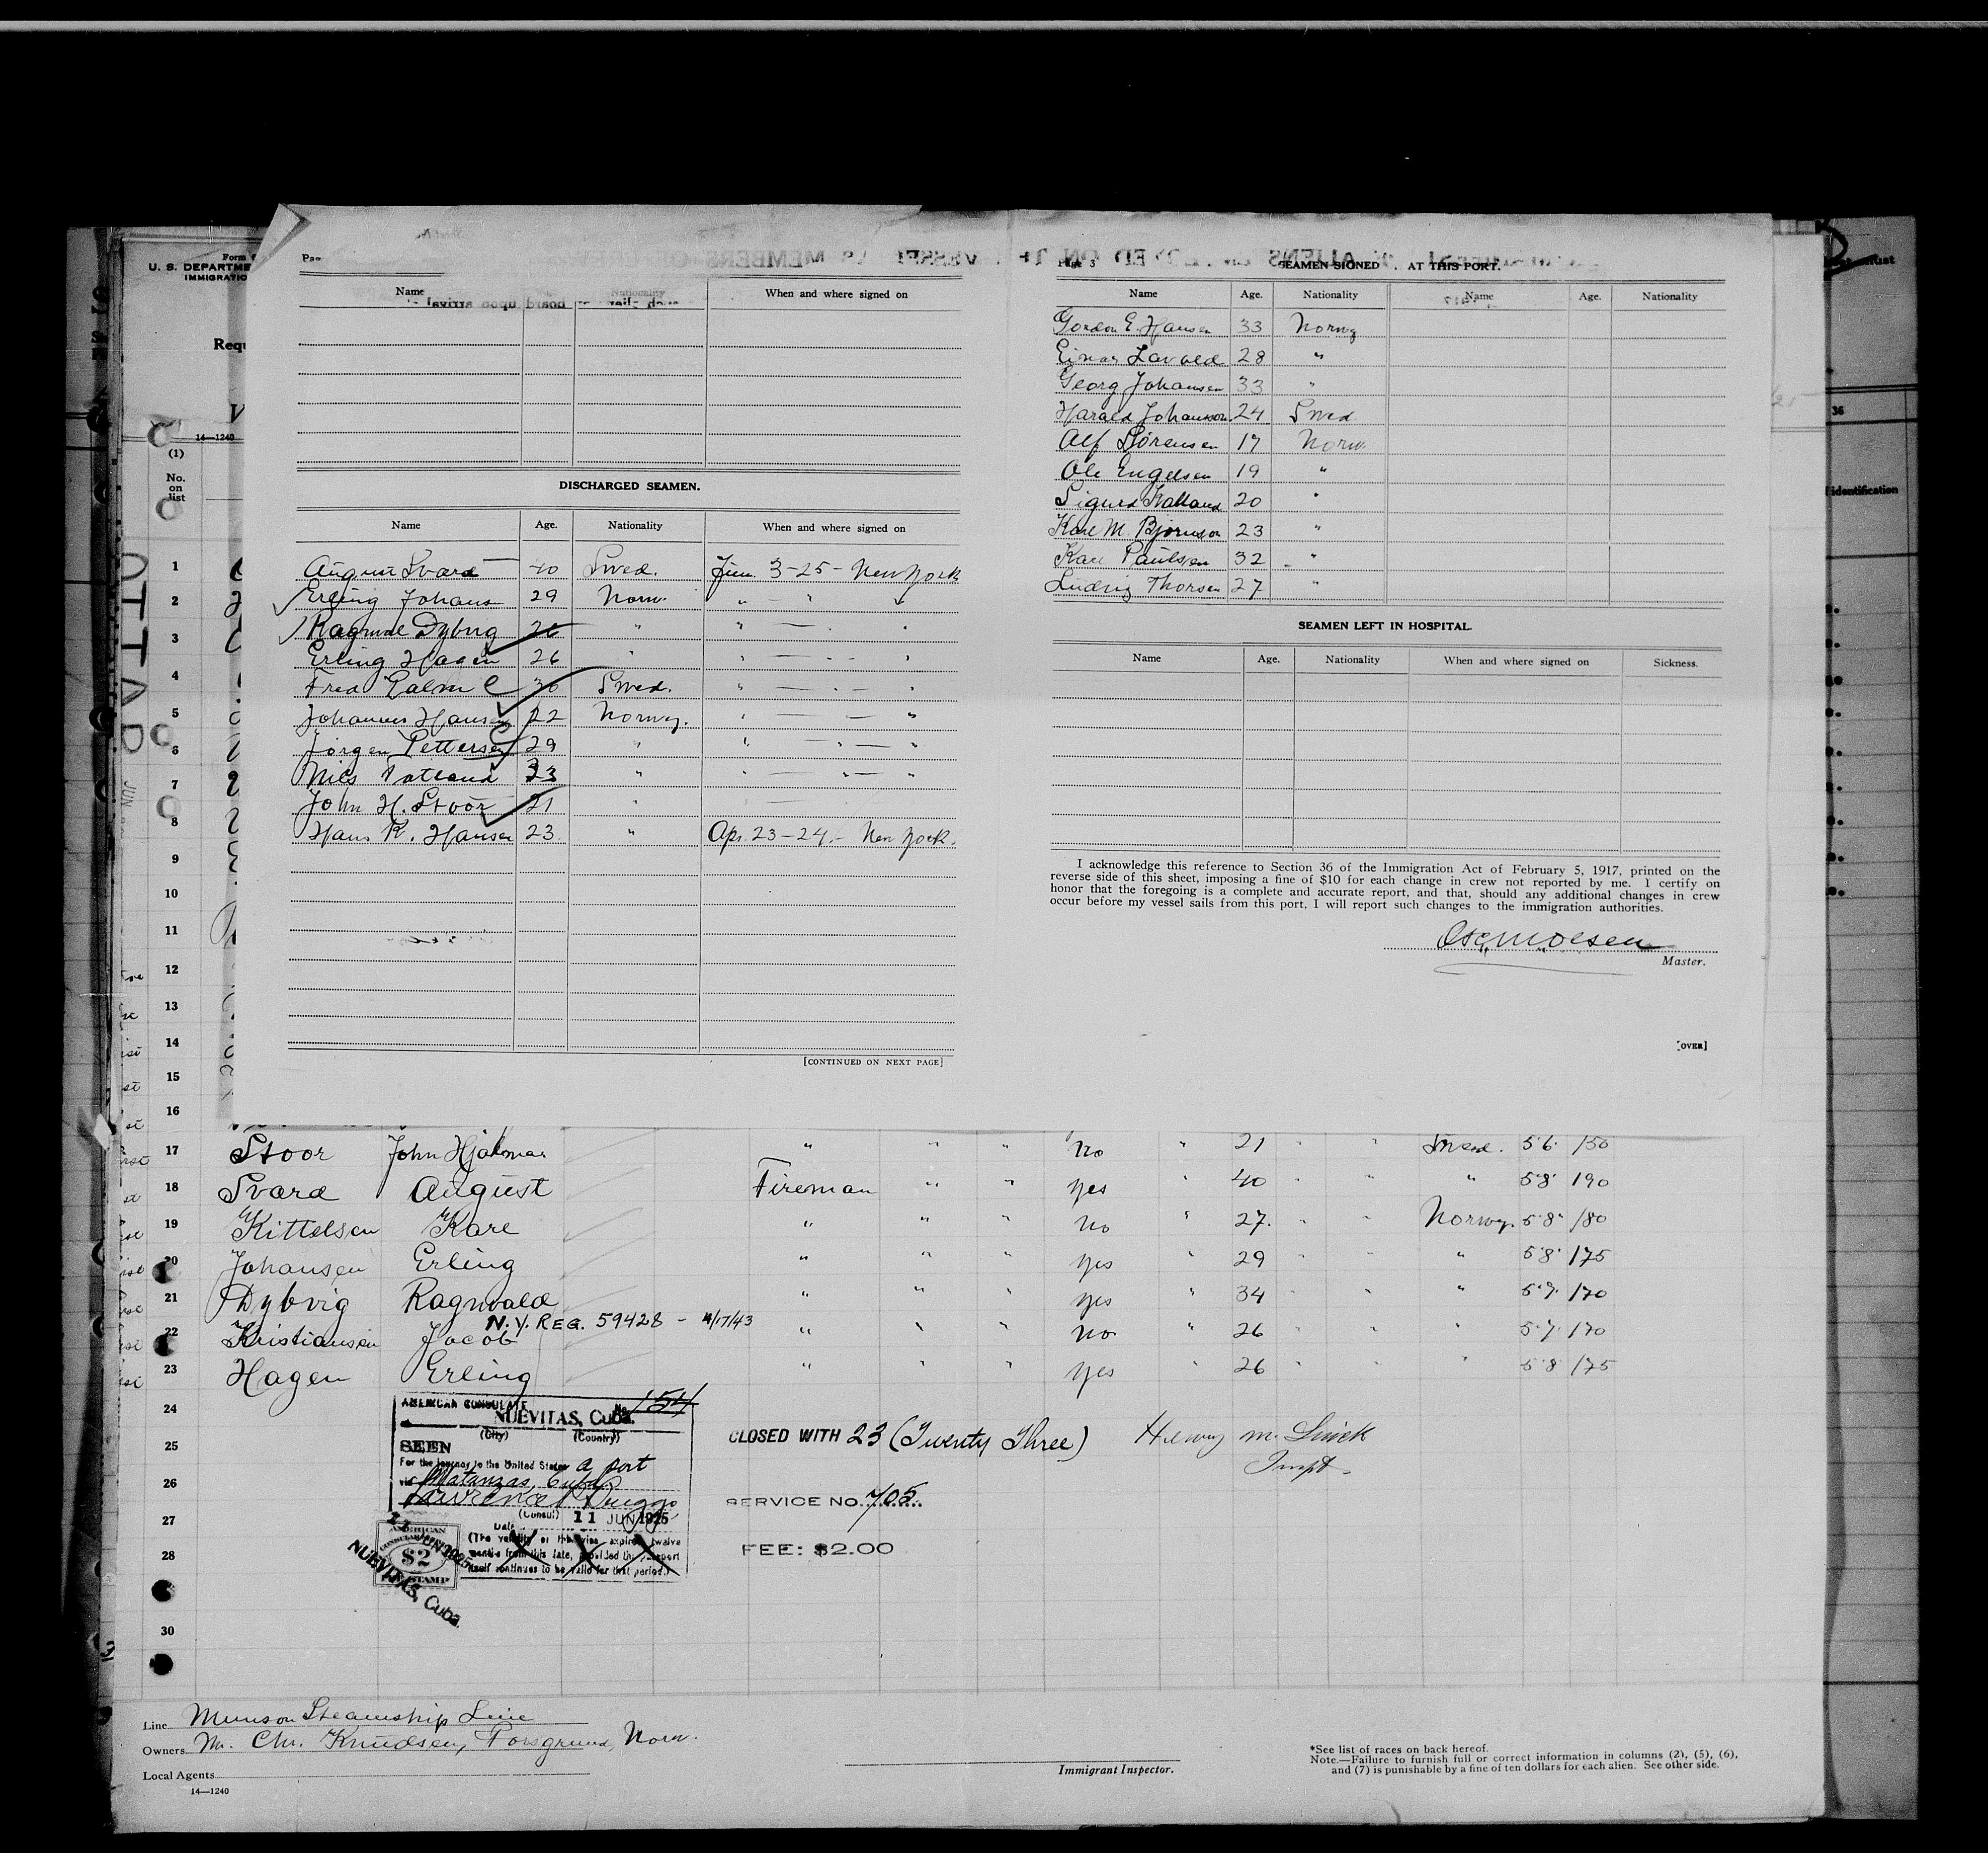 Form
U. S. DEPARTME
IMMIGRATIO
Requ
14—1240
(1)
No. on list
OTTAR
JUN
36
identification
Page 3
SEAMEN SIGNED AT THIS PORT.
Name When and where signed on
DISCHARGED SEAMEN.
Name Age. Nationality When and where signed on
August Svard 40 Swed. Jun. 3-25- New York
Erling Johans 29 Norw. " - " "
Ragnval Dybvig " " — "
Erling Hagen 26 " " — - - "
Fred Palm C 30 Swed. " — - — "
Johannes Hansen 22 Norwy. " — - — "
Jorgen Pettersen 29 " " — " — "
Nils Totland 23 " " — " — "
John H. Stoor 21 "
Hans K. Hansen 23 " Apr. 23-24.- New York.
[CONTINUED ON NEXT PAGE]
Name Age. Nationality Name Age. Nationality
Gordon E. Hansen 33 Norwy
Einar Lavold 28 "
Georg Johansen 33 "
Harald Johansson 24 Swed
Alf Sørensen 17 Norw.
Ole Engelsen 19 "
Sigurd 20 "
Karl M. Bjornson 23 "
Karl Paulsen 32 "
Ludvig Thorsen 27 "
SEAMEN LEFT IN HOSPITAL.
Name Age. Nationality When and where signed on Sickness.
I acknowledge this reference to Section 36 of the Immigration Act of February 5, 1917, printed on the
reverse side of this sheet, imposing a fine of $10 for each change in crew not reported by me. I certify on
honor that the foregoing is a complete and accurate report, and that, should any additional changes in crew
occur before my vessel sails from this port, I will report such changes to the immigration authorities.
Master.
[OVER]
1
2
3
4
5
6
7
8
9
10
11
12
13
14
15
16
17 Stoor John Hjalmar " " " no " 21 " " Swed. 5'6" 150
18 Svard August Fireman " " yes " 40 " " " 5'8" 190
19 Kittelsen Kare " " " no " 27. " " Norwy. 5'8" 180
20 Johansen Erling " " " yes 29 " " " 5'8" 175
21 Dybvig Ragnvald " " " yes " 34 " " " 5'7" 170
N.Y. REG. 59428 - 4/17/43
22 Kristiansen Jacob " " " no " 26 " " " 5'7" 170
23 Hagen Erling " " " yes " 26 " " " 5'8 175
24
25
26
27
28
30
AMERICAN CONSULATE No. 154
NUEVITAS, Cuba.
(City) (Country)
SEEN
For the journey to the United States a port
via Matanzas, Cuba
Lawrence P. Briggs
(Consul) 11 JUN 1925
Date
(The validity of this visa expires twelve
months from this date, provided the passport
itself continues to be valid for that period.)
AMERICAN CONSULAR $2 FEE STAMP
11 JUN 1925
NUEVITAS, Cuba.
CLOSED WITH 23 (Twenty Three) Henry M. Linck
Inspt.
SERVICE NO. 705
FEE: $2.00
Line Munson Steamship Line
Owners M. Chr. Knudsen, Porsgrund, Norw.
Local Agents
14—1240
Immigrant Inspector.
*See list of races on back hereof.
Note.—Failure to furnish full or correct information in columns (2), (5), (6),
and (7) is punishable by a fine of ten dollars for each alien. See other side.